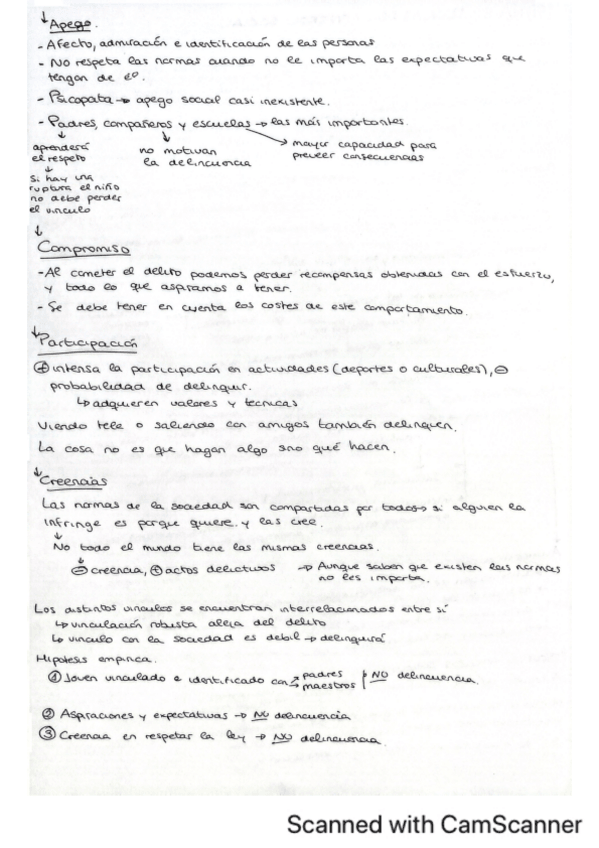 ↓ Apego.
- Afecto, admiración e identificación de las personas
- No respeta las normas cuando no le importa las expectativas que
tengan de el.
- Psicopata → apego social casi inexistente.
- Padres, compañeros y escuelas → las más importantes.
aprenderá el respeto
↓
Si hay una ruptura el niño no debe perder el vinculo
no motivan la delincuencia
mayor capacidad para preveer consecuencias
↓
Compromiso
- Al cometer el delito podemos perder recompensas obtenidas con el esfuerzo,
y todo lo que aspiramos a tener.
- Se debe tener en cuenta los costes de este comportamiento.
↓ Participación
⊕ intensa la participación en actividades (deportes o culturales), ⊖
probabilidad de delinquir.
↳ adquieren valores y tecnicas
Viendo tele o saliendo con amigos también delinquen.
La cosa no es que hagan algo sno qué hacen.
↓ Creencias
Las normas de la sociedad son compartidas por todos → si alguien la
infringe es porque quiere y las cree.
↓
No todo el mundo tiene las mismas creencias.
↓
⊖ creencia, ⊕ actos delictivos → Aunque saben que existen las normas
no les importa.
Los distintos vinculos se encuentran interrelacionados entre sí
↳ vinculación robusta aleja del delito
↳ vinculo con la sociedad es debil → delinquirá
Hipotesis empirica.
① Joven vinculado e identificado con → padres
→ maestros | NO delincuencia.
② Aspiraciones y expectativas → NO delincuencia
③ Creencia en respetar la ley → NO delincuencia.
Scanned with CamScanner